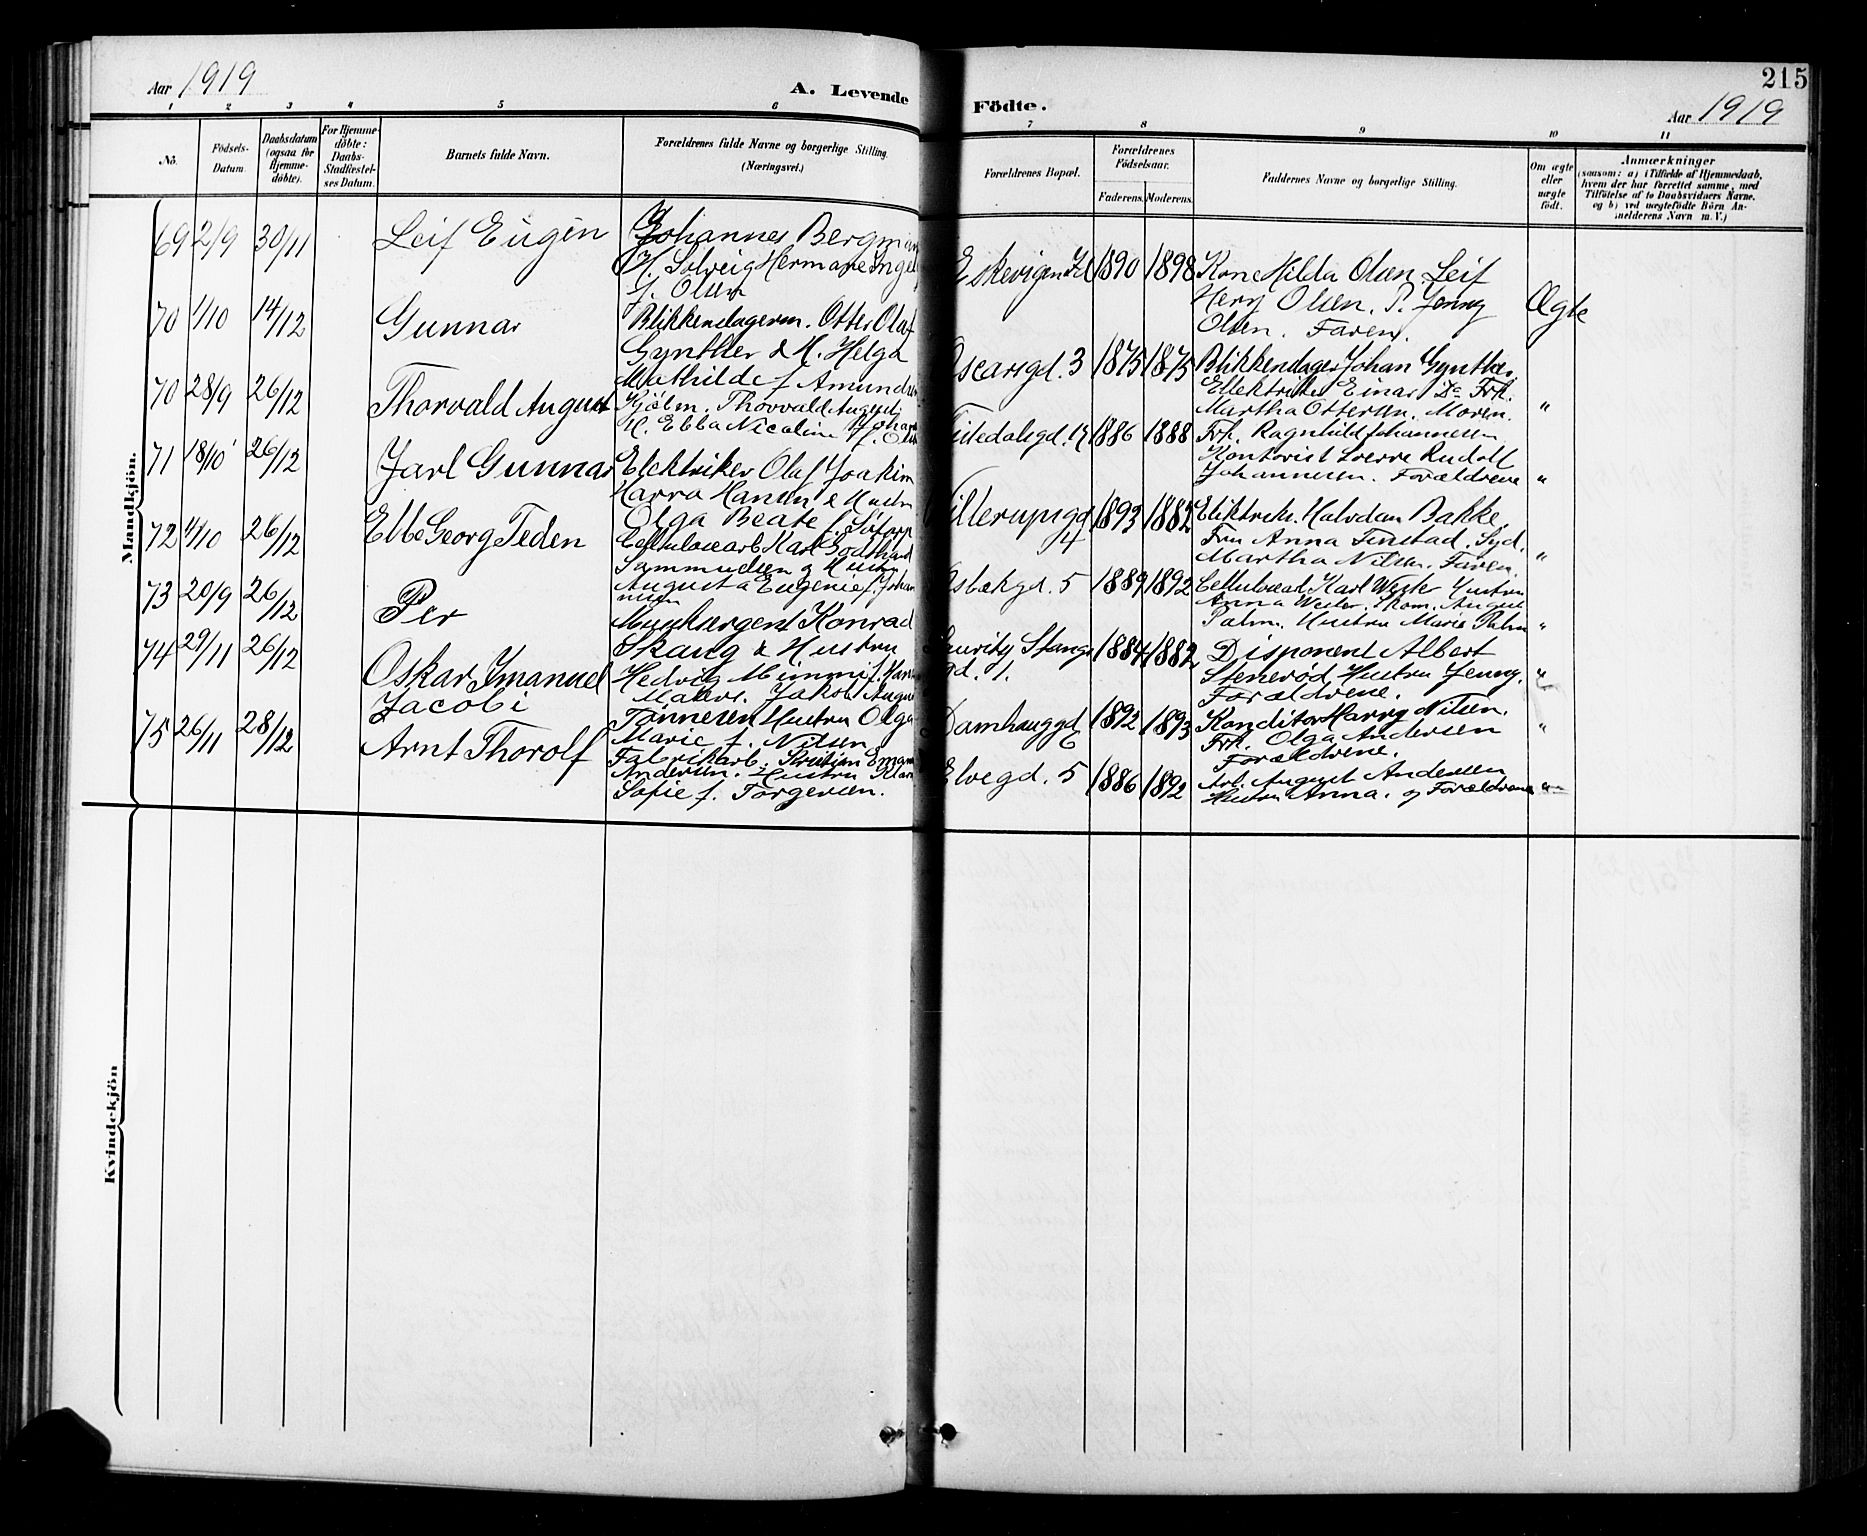 215
Aar 1919
A. Levende Födte.
Aar 1919
1 2 3 4 5 6 7 8 9 10 11
No.
Födsels-
Datum.
Daabsdatum
(ogsaa for
Hjemme-
döbte).
For Hjemme-
döbte:
Daabs-
Stadfæstel-
ses Datum.
Barnets fulde Navn.
Forældrenes fulde Navne og borgerlige Stilling.
(Næringsvei.)
Forældrenes Bopæl.
Forældrenes
Födselsaar.
Faderens. Moderens.
Faddernes Navne og borgerlige Stilling.
Om ægte
eller
uægte
født.
Anmærkninger
(saasom: a) i Tilfælde af Hjemmedaab,
hvem der har forrettet samme, med
Tilföielse af to Daabsvidners Navne,
og b) ved uægtefödte Börn An-
melderens Navn m. V.)
Mandkjön.
69 2/9 30/11 Leif Eugen
Johannes Bergman
H. Solveig Hermane Ingeb
f. Olsen
1890 1898
Kone Hilda Olsen. Leif
Henry Olsen. P. Jenny
Olsen. Faren.
Ægte
70 1/10 14/12 Gunnar
Blikkenslagerm. Otter Olaf
Gynther & H. Helga
Mathilde f. Amundsen
Oscarsgd. 3 1875 1875
Blikkenslager Johan Gynther
Ellektriker Einar Do Frk.
Martha Ottersen. Moren.
"
70 28/9 26/12 Thorvald August
Hjølm. Thorvald August
H. Ebba Nicoline f.
Tistedalsgd. 1886 1888
Frk. Ragnhild Johannesen
Kontorist Sverre Rudolf
Johannesen. Forældrene
"
71 18/10 26/12 Jarl Gunnar
Elektriker Olaf Joakim
Harra Hansen & Hustru
Olga Beate f.
4 1893 1882
Elektrikr. Halvdan Bakke.
Fru Anna Finstad. Syd.
Martha Nilsen. Faren
"
72 4/10 26/12 Ebbe Georg Teden
Cellulosearb Karl Godthard
Sammuelsen & Hustru
Augusta Eugenie f. Johan
nesen
Osbækgd. 5 1889 1892
Cellulosearb. Karl Wester Hustru
Anna Wester. Skom. August
Palm. Hustru Marie Palm
"
73 20/9 26/12 Per
Konrad
Skaug & Hustru
Hedvig Mimmi f.
Lauritz Stangs
gd. 1. 1884 1882
Disponent Albert
Stenerød Hustru Jenny.
Forældrene.
"
74 29/11 26/12 Oskar Imanuel
Jacobi
Jakob August
Tønnesen Hustru Olga
Marie f. Nilsen
Damhauggd
6 1892 1893
Konditor Harry Nilsen.
Frk. Olga Andersen
Forældrene.
"
75 26/11 28/12 Arnt Thorolf
Fabrikarb. Kristian Eman
Andersen. Hustru Klara
Sofie f. Torgersen.
Elvegd. 5 1886 1892
Arb. August Andersen
Hustru Anna. og Forældrene
"
Kvindekjön